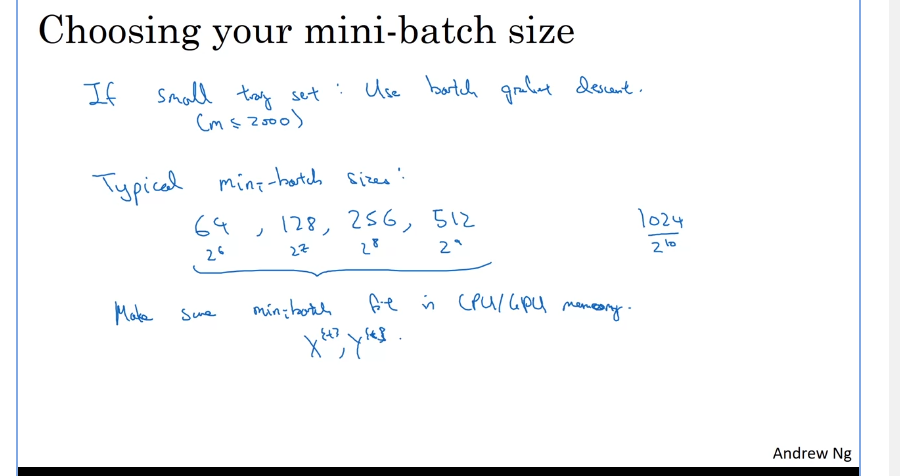 Choosing your mini-batch size
If small trag set : Use batch gradient descent.
(m ≤ 2000)
Typical mini-batch sizes:
64, 128, 256, 512 1024
2⁶ 2⁷ 2⁸ 2⁹ 2¹⁰
Make sure minibatch fit in CPU/GPU memory.
X^{t}, Y^{t}.
Andrew Ng